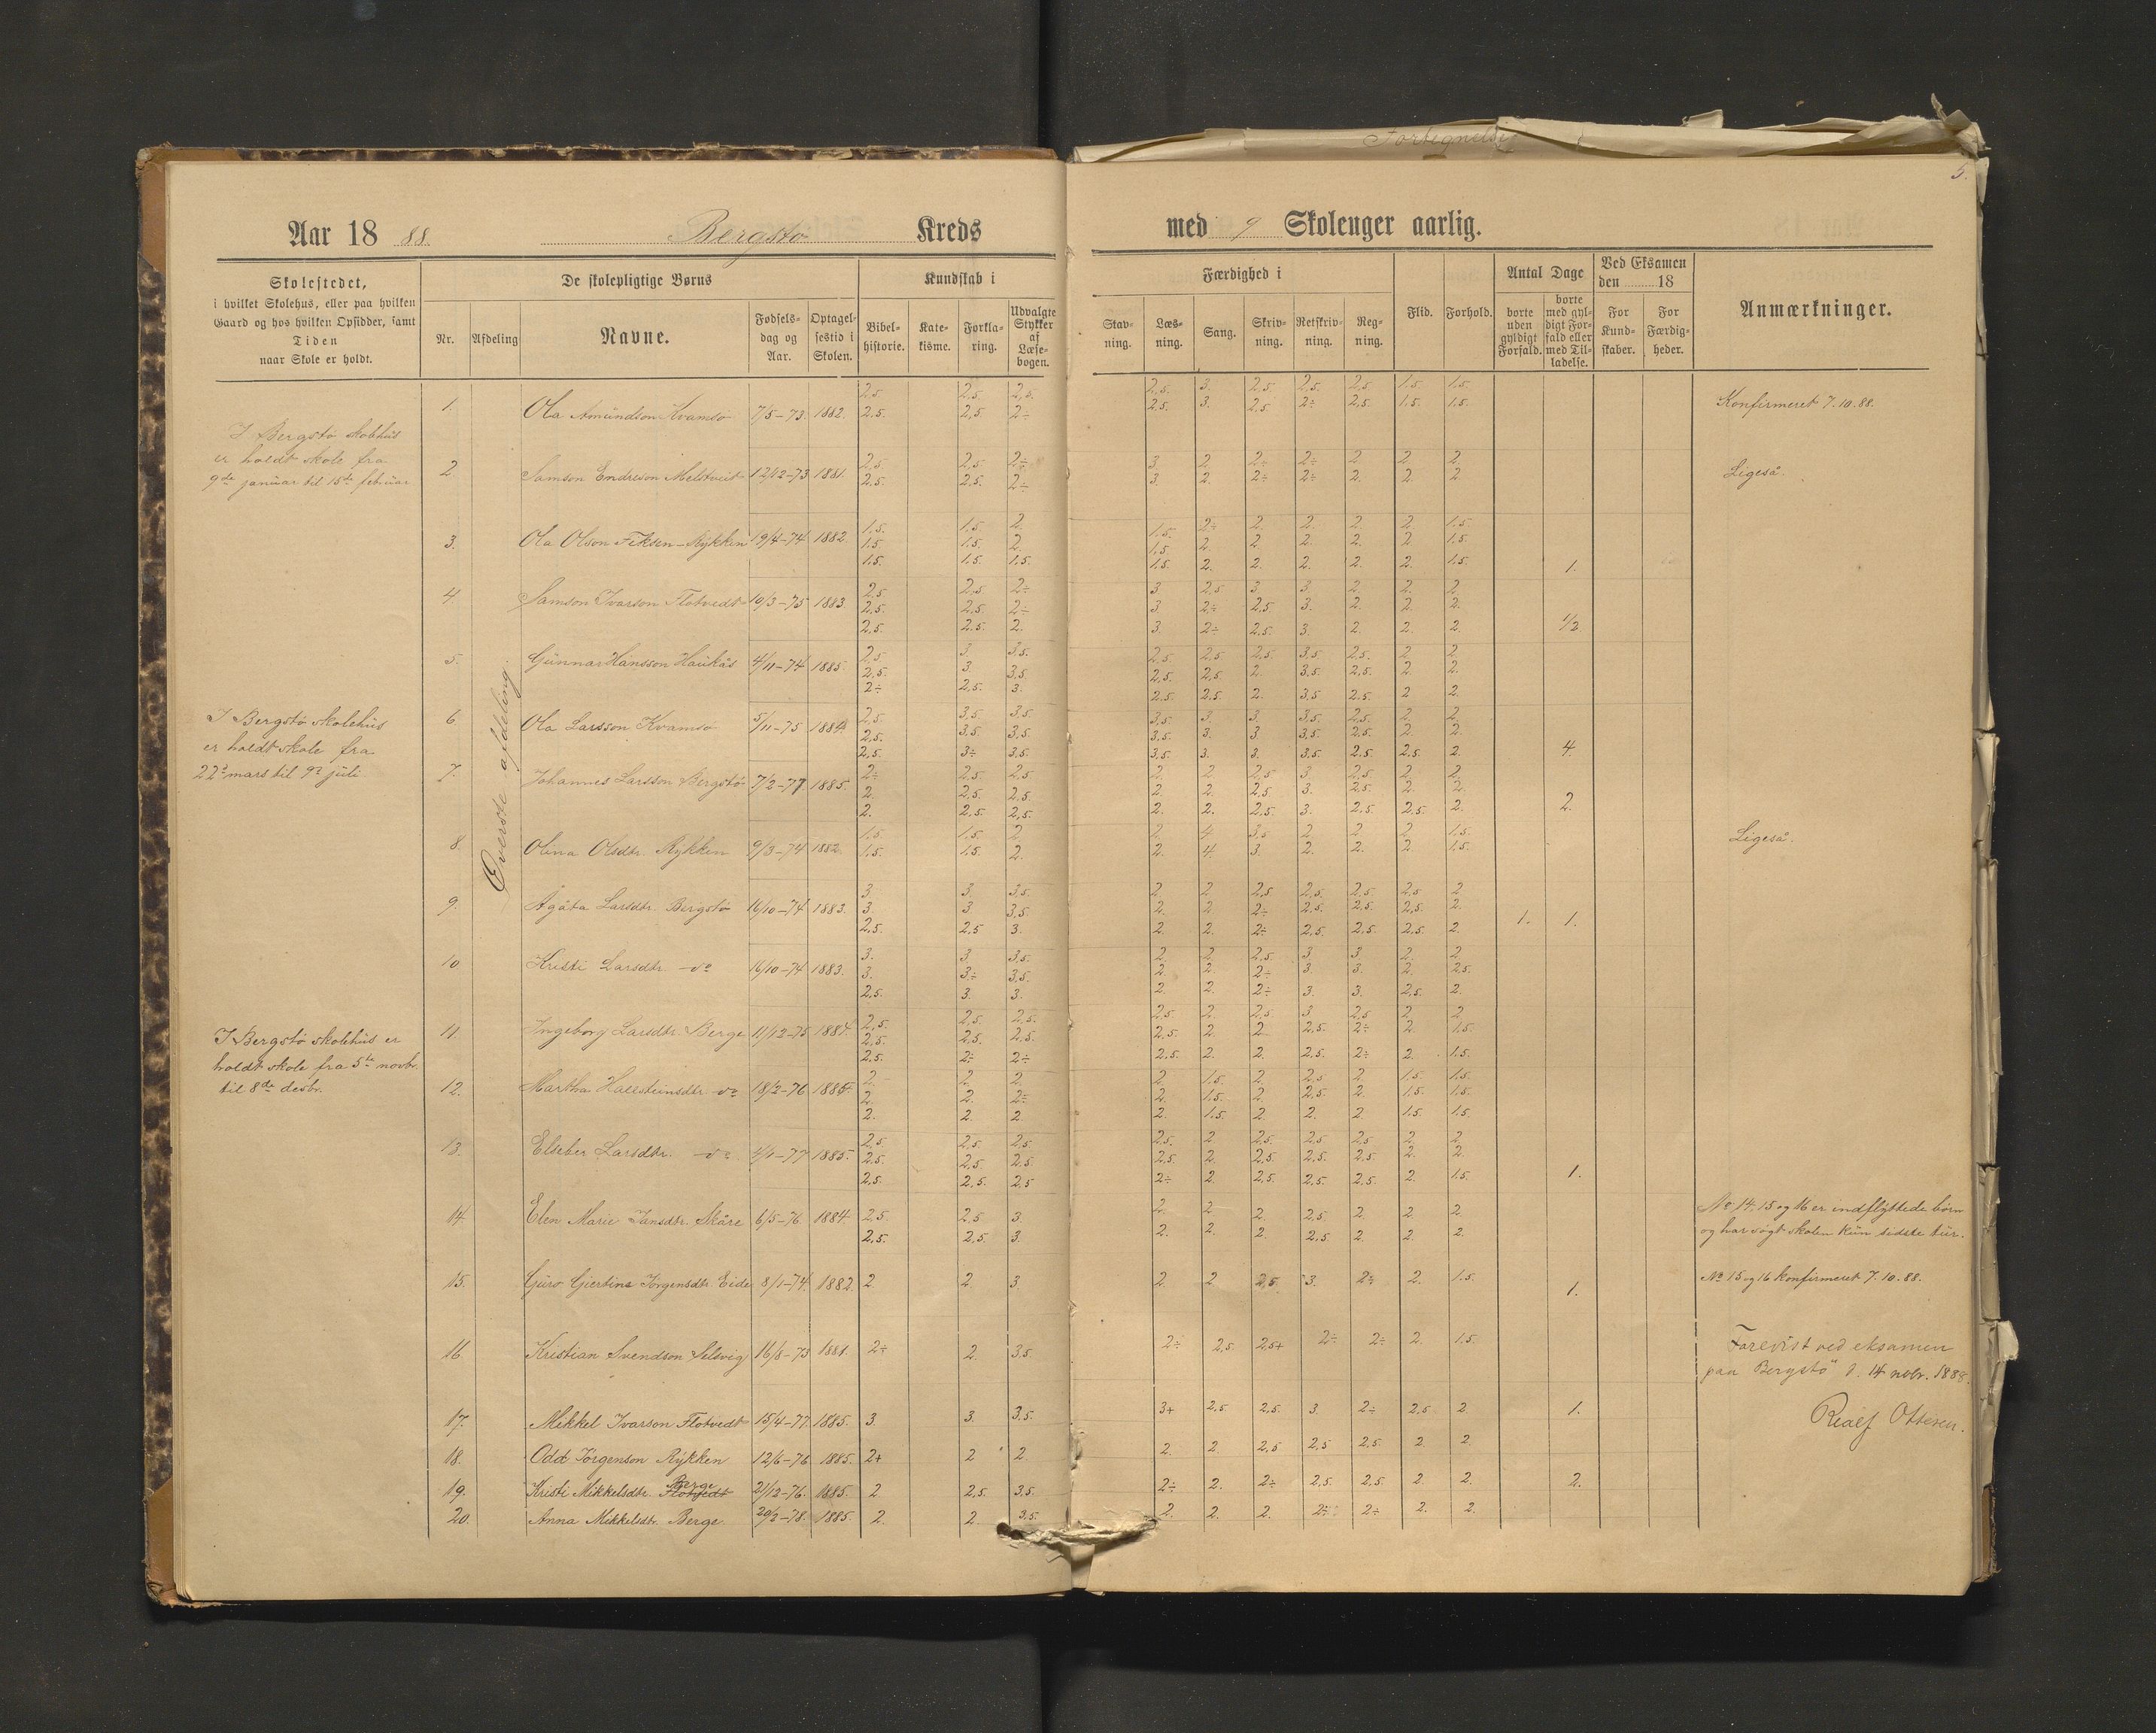 Fortegnelse
5.
Aar 1888. Bergstø Kreds med 9 Skoleuger aarlig.
Skolestedet,
i hvilket Skolehus, eller paa hvilken
Gaard og hos hvilken Opsidder, samt
Tiden
naar Skole er holdt.
De skolepligtige Børns
Nr.
Afdeling
Navne.
Fødsels-
dag og
Aar.
Optagel-
sestid i
Skolen.
Kundskab i
Bibel-
historie.
Kate-
kisme.
Forkla-
ring.
Udvalgte
Stykker
af
Læse-
bogen.
Færdighed i
Stav-
ning.
Læs-
ning.
Sang.
Skriv-
ning.
Retskriv-
ning.
Reg-
ning.
Flid.
Forhold.
Antal Dage
borte
uden
gyldigt
Forfald.
borte
med gyl-
digt For-
fald eller
med Til-
ladelse.
Ved Eksamen
den 18
For
Kund-
skaber.
For
Færdig-
heder.
Anmærkninger.
I Bergstø skolhus
er holdt skole fra
9de januar til 15de februar
I Bergstø skolehus
er holdt skole fra
22d mars til 9d juli
I Bergstø skolehus er
holdt skole fra 5te novbr.
til 8de desbr.
Øverste afdeling.
1. Ola Amundson Kvamsø 7/5-73. 1882. 2,5 2,5 2,5. 2,5. 3. 2,5 2,5. 2,5 1.5 1.5.
2.5. 2,5 2÷ 2,5. 3. 2,5 2÷ 2,5. 1.5. 1.5. Konfirmeret 7.10.88.
2. Samson Endreson Melstveit 12/12-73 1881. 2,5. 2,5. 2÷ 3. 2. 2÷ 2÷ 2 2. 2.
2.5. 2.5. 2÷ 3. 2. 2÷ 2÷ 2. 2. 2. Ligeså.
3. Ola Olson Fiksen-Rykken 19/4-74 1882. 1,5. 1.5. 2. 1.5. 2÷ 2. 2. 2. 2. 1.5.
1.5 1.5. 2. 1.5. 2. 2 2. 2. 2 1.5
1.5. 1.5. 1.5. 1.5. 2. 2. 2. 2. 2. 1.5. 1.
4. Samson Ivarson Flotvedt 10/3-75 1883. 2,5 2,5 2÷ 3 2,5 3 3 2. 2. 2
2,5. 2,5. 2÷ 3. 2÷ 2,5. 3. 2. 2. 2.
2,5. 2.5. 2. 3. 2÷ 2,5. 3. 2. 2. 2. 1/2
5. Gunnar Hansson Haukås 4/11-74 1885. 2,5 3 3,5. 2,5. 2,5 2,5 3,5 2,5. 2 2
2,5. 3. 3,5 2,5. 2,5 2. 3,5. 2,5. 2 2.
2÷ 2,5. 3. 2.5 2.5. 2. 3,5 2.5 2 2.
6. Ola Larsson Kvamsø 5/11-75 1884. 2,5 3,5. 3,5. 3,5. 3. 3. 3,5. 2,5. 2. 2.
2,5. 3,5. 3,5. 3,5. 3. 3 3,5. 2,5. 2. 2.
2,5. 3÷ 3,5. 3,5. 3. 3. 3,5. 2,5 2,5. 2. 4
7. Johannes Larsson Bergstø 7/2-77 1885. 2÷ 2,5. 2,5 2. 2 2,5 3 2,5 2. 2.
2. 2,5. 2,5. 2. 2. 2,5 3. 2,5. 2. 2.
2. 2,5. 2,5. 2. 2. 2,5. 3. 2,5. 2,5. 2. 2.
8. Olina Olsdtr. Rykken 9/3-74 1882. 1.5 1.5. 2 2. 4 3,5 2 2 2. 1.5.
1.5. 1,5. 2. 2. 4. 3. 2. 2. 2 1.5. Ligeså.
9. Agåta Larsdtr. Bergstø 16/10-74 1883. 3. 3. 3,5. 2 2 2,5 2,5. 2,5 2,5 2
3. 3 3,5. 2. 2 2÷ 2.5. 2,5. 2,5. 2.
2,5. 2,5 3. 2. 2. 2÷ 2,5. 2,5. 2,5. 2. 1. 1.
10 Kristi Larsdtr. do 16/10-74 1883. 3. 3. 3,5. 2. 2. 2,5. 3 3 2. 2
3. 3÷ 3,5. 2. 2. 2÷ 3. 3. 2. 2.5.
2,5. 3. 3. 2. 2. 2÷ 3. 3. 2,5. 2.
11. Ingeborg Larsdtr. Berge 11/12-75 1884. 2,5. 2,5 2,5. 2,5 2. 2,5 3 2,5 2 2
2,5. 2,5. 2,5. 2,5. 2. 2 2,5. 2÷ 2. 1.5.
2,5. 2÷ 2÷ 2,5. 2. 2. 2,5. 2÷ 2. 1.5.
12. Martha Hallsteinsdtr do 18/2-76 1885. 2. 2. 2. 2 1.5. 2. 2,5 2 1.5. 1.5.
2. 2. 2÷ 2. 1.5. 2. 2,5. 2. 1.5. 1.5.
2. 2. 2 2. 1.5. 2 2. 2. 1.5. 1.5
13. Elseber Larsdtr. do 4/1-77 1885. 2,5 2,5 2,5. 2,5. 2 2,5. 2,5 2,5 2 2
2,5. 2,5. 2,5 2,5 2. 2,5 2,5. 2,5. 2. 2.
2,5. 2,5. 2,5 2÷ 2. 2,5. 2,5. 2,5. 2. 1.5. 1.
14. Elen Marie Jansdtr. Skåre 6/5-76. 1884. 2,5. 2,5 3. 2. 2. 2. 2,5 2. 2. 2.
2,5. 2,5. 3. 2. 2. 2. 2,5 2. 2. 2.
No 14. 15 og 16 er indflyttede børn
og har søgt skolen kun sidste tur.
15. Guro Gjertine Jørgensdtr Eide 8/1-74. 1882. 2 2. 3. 2. 2. 2,5. 3. 2÷ 2. 1.5. 1. No 15 og 16 konfirmeret 7.10.88.
16. Kristian Svendson Selsvig 16/8-73 1881. 2÷ 2. 3,5. 2÷ 2,5. 2,5+ 2÷ 2÷ 2. 1.5.
Forevist ved eksamen
paa Bergstø d. 14 novbr. 1888.
Ottesen.
17. Mikkel Ivarson Flotvedt 15/4-77 1885. 3. 3. 3,5. 3+ 2,5 2,5. 3 2÷ 2,5. 2 1.
18. Odd Jörgenson Rykken 12/6-76 1885. 2+ 2 2 2. 2 2,5 2,5 2,5. 2. 2.
19. Kristi Mikkelsdtr. Flotvedt Berge 21/12-76. 1885. 2 2,5. 3,5. 2÷ 2. 2÷ 2,5. 2,5. 2. 2. 2.
20. Anna Mikkelsdtr. Berge 20/2-78. 1885. 2. 2. 3,5. 2. 2. 2. 2÷ 2÷ 2. 2.